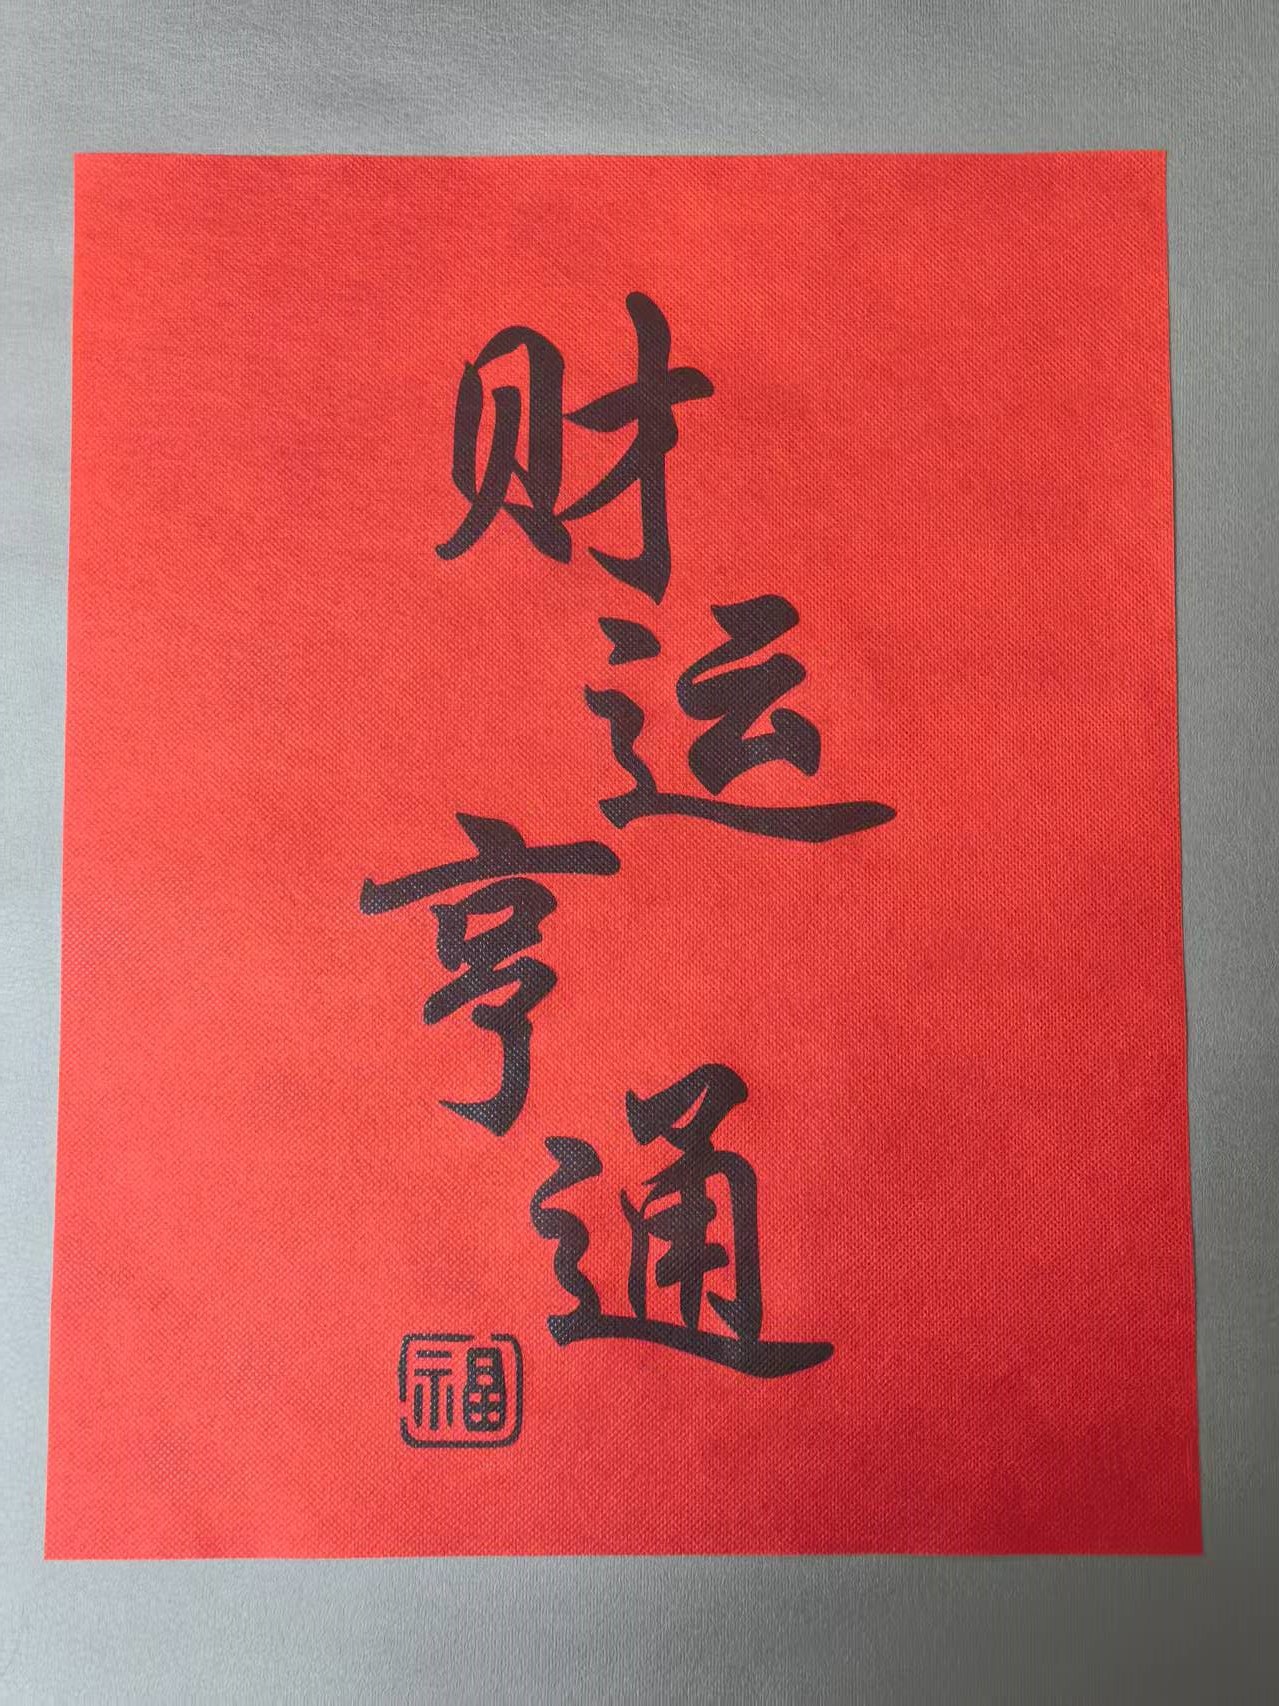 财运亨通
福